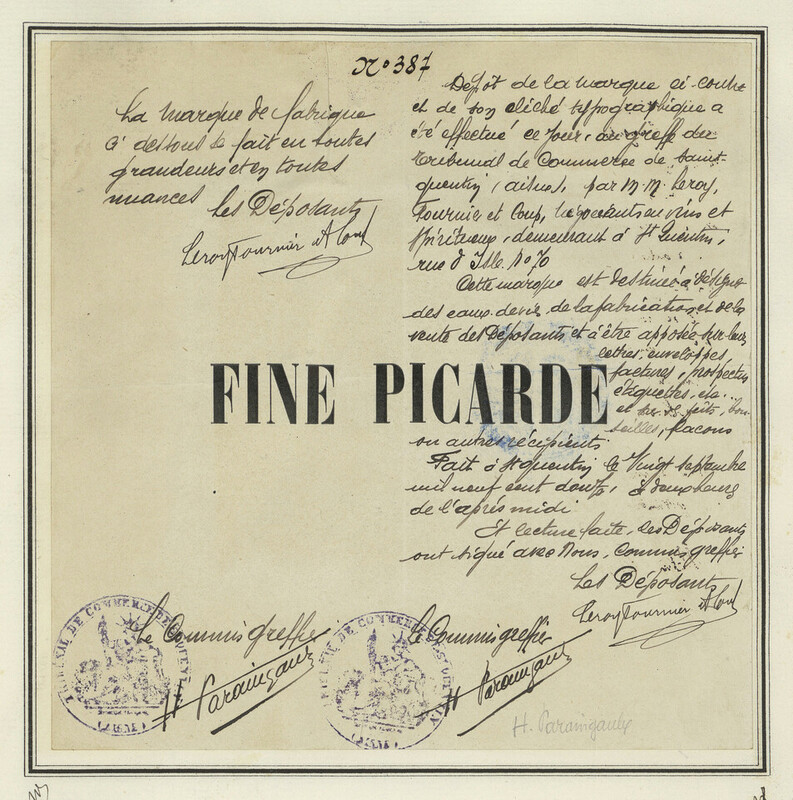 No 387
La marque de fabrique
ci dessous se fait en toutes
grandeurs et en toutes
nuances
Les Déposants
Leroy Fournier et Coup
Dépot de la marque ci-contre
et de son cliché typographique a
été effectué ce jour, au greffe du
Tribunal de Commerce de Saint-
quentin, (aisne), par M.M. Leroy,
Fournier et Coup, négociants en vins et
spiritueux, demeurant à St Quentin,
rue d'Isle No 70
Cette marque est destinée à désigner
des eaux de vie, de la fabrication et de la
vente des Déposants et à être apposée sur leurs
lettres, enveloppes,
factures, prospectus
étiquettes, etc..
et sur les fûts, bou-
teilles, flacons
FINE PICARDE
ou autres récipients
Fait à St quentin le Vingt septembre
mil neuf cent douze, à deux heures
de l'après midi
Et lecture faite, les Déposants
ont signé avec Nous, Commis greffier
Les Déposants
Leroy Fournier et Coup
Le Commis greffier
H Paraingaux
TRIBUNAL DE COMMERCE DE St QUENTIN
(AISNE)
Le Commis greffier
H Paraingaux
TRIBUNAL DE COMMERCE DE St QUENTIN
(AISNE)
H. Paraingaux